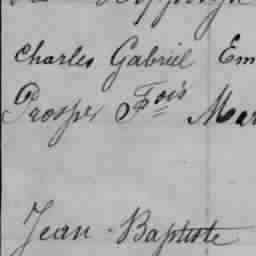 Charles Gabriel Em
Prosper Fois Mar
Jean-Baptiste